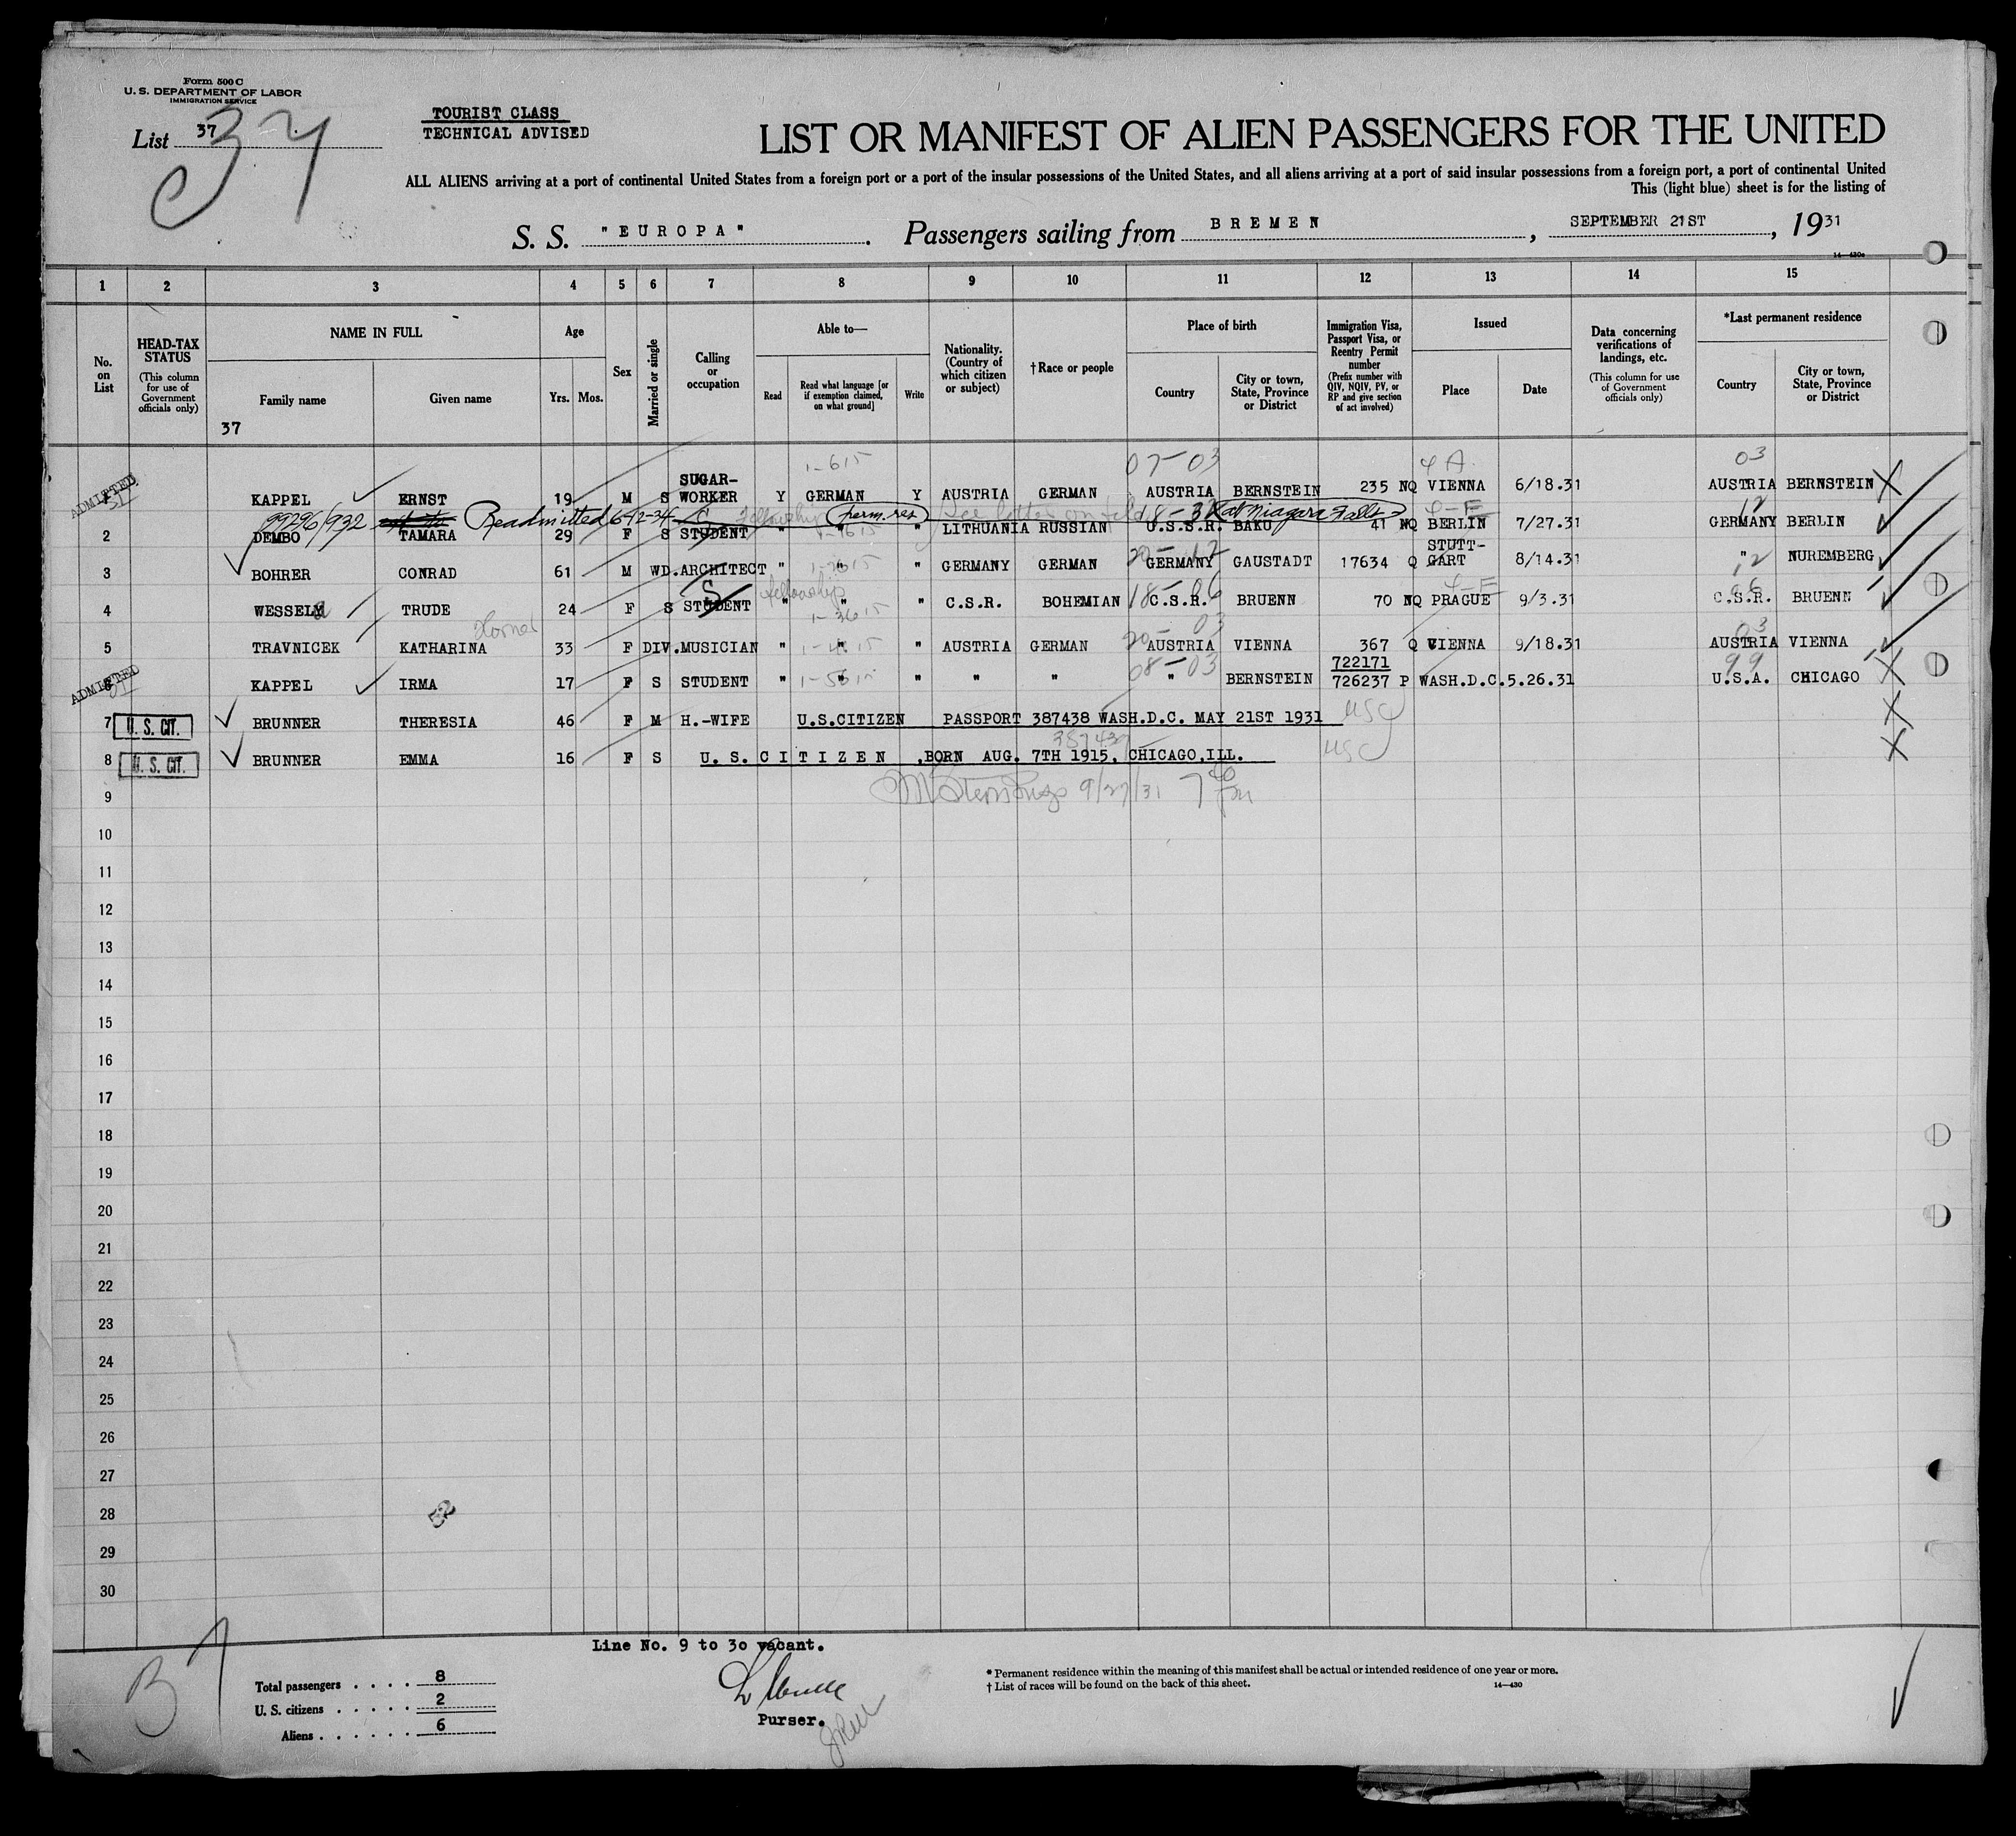 Form 500 C
U. S. DEPARTMENT OF LABOR
IMMIGRATION SERVICE
List 37
37
TOURIST CLASS
TECHNICAL ADVISED
LIST OR MANIFEST OF ALIEN PASSENGERS FOR THE UNITED
ALL ALIENS arriving at a port of continental United States from a foreign port or a port of the insular possessions of the United States, and all aliens arriving at a port of said insular possessions from a foreign port, a port of continental United
This (light blue) sheet is for the listing of
S. S. "EUROPA". Passengers sailing from BREMEN, SEPTEMBER 21ST, 1931
14—430c
1 2 3 4 5 6 7 8 9 10 11 12 13 14 15
No. on List
HEAD-TAX STATUS (This column for use of Government officials only)
NAME IN FULL
Family name
Given name
37
Age
Yrs. Mos.
Sex
Married or single
Calling or occupation
Able to—
Read
Read what language [or if exemption claimed, on what ground]
Write
Nationality. (Country of which citizen or subject)
†Race or people
Place of birth
Country
City or town, State, Province or District
Immigration Visa, Passport Visa, or Reentry Permit number (Prefix number with QIV, NQIV, PV, or RP and give section of act involved)
Issued
Place
Date
Data concerning verifications of landings, etc. (This column for use of Government officials only)
*Last permanent residence
Country
City or town, State, Province or District
1-615 07-03 4A. 03
ADMITTED 1 KAPPEL ERNST 19 M S SUGAR-WORKER Y GERMAN Y AUSTRIA GERMAN AUSTRIA BERNSTEIN 235 NQ VIENNA 6/18.31 AUSTRIA BERNSTEIN
99296/932 Readmitted 6-12-34 perm. res See letter on 18-32 at Niagara Falls 4-E 12
2 DEMBO TAMARA 29 F S STUDENT " " " LITHUANIA RUSSIAN U.S.S.R. BAKU 41 NQ BERLIN 7/27.31 GERMANY BERLIN
fellowship
3 BOHRER CONRAD 61 M WD. ARCHITECT " " " GERMANY GERMAN GERMANY GAUSTADT 17634 Q STUTT-GART 8/14.31 " NUREMBERG
S fellowship 18-06 4-E 06
4 WESSELY a TRUDE 24 F S STUDENT " " " C.S.R. BOHEMIAN C.S.R. BRUENN 70 NQ PRAGUE 9/3.31 C.S.R. BRUENN
1-3615 20-03 03
5 TRAVNICEK KATHARINA 33 F DIV. MUSICIAN " " " AUSTRIA GERMAN AUSTRIA VIENNA 367 Q VIENNA 9/18.31 AUSTRIA VIENNA
08-03 722171 99
ADMITTED 6 KAPPEL IRMA 17 F S STUDENT " " " " " " BERNSTEIN 726237 P WASH.D.C. 5.26.31 U.S.A. CHICAGO
7 U. S. CIT. BRUNNER THERESIA 46 F M H.-WIFE U.S.CITIZEN PASSPORT 387438 WASH.D.C. MAY 21ST 1931 USC
387438
8 U. S. CIT. BRUNNER EMMA 16 F S U.S. CITIZEN, BORN AUG. 7TH 1915, CHICAGO, ILL. USC
9 9/27/31
10
11
12
13
14
15
16
17
18
19
20
21
22
23
24
25
26
27
28
29
30
Line No. 9 to 30 vacant.
Total passengers . . . . 8
U. S. citizens . . . . . 2
Aliens . . . . . 6
Purser.
* Permanent residence within the meaning of this manifest shall be actual or intended residence of one year or more.
† List of races will be found on the back of this sheet.
14—430